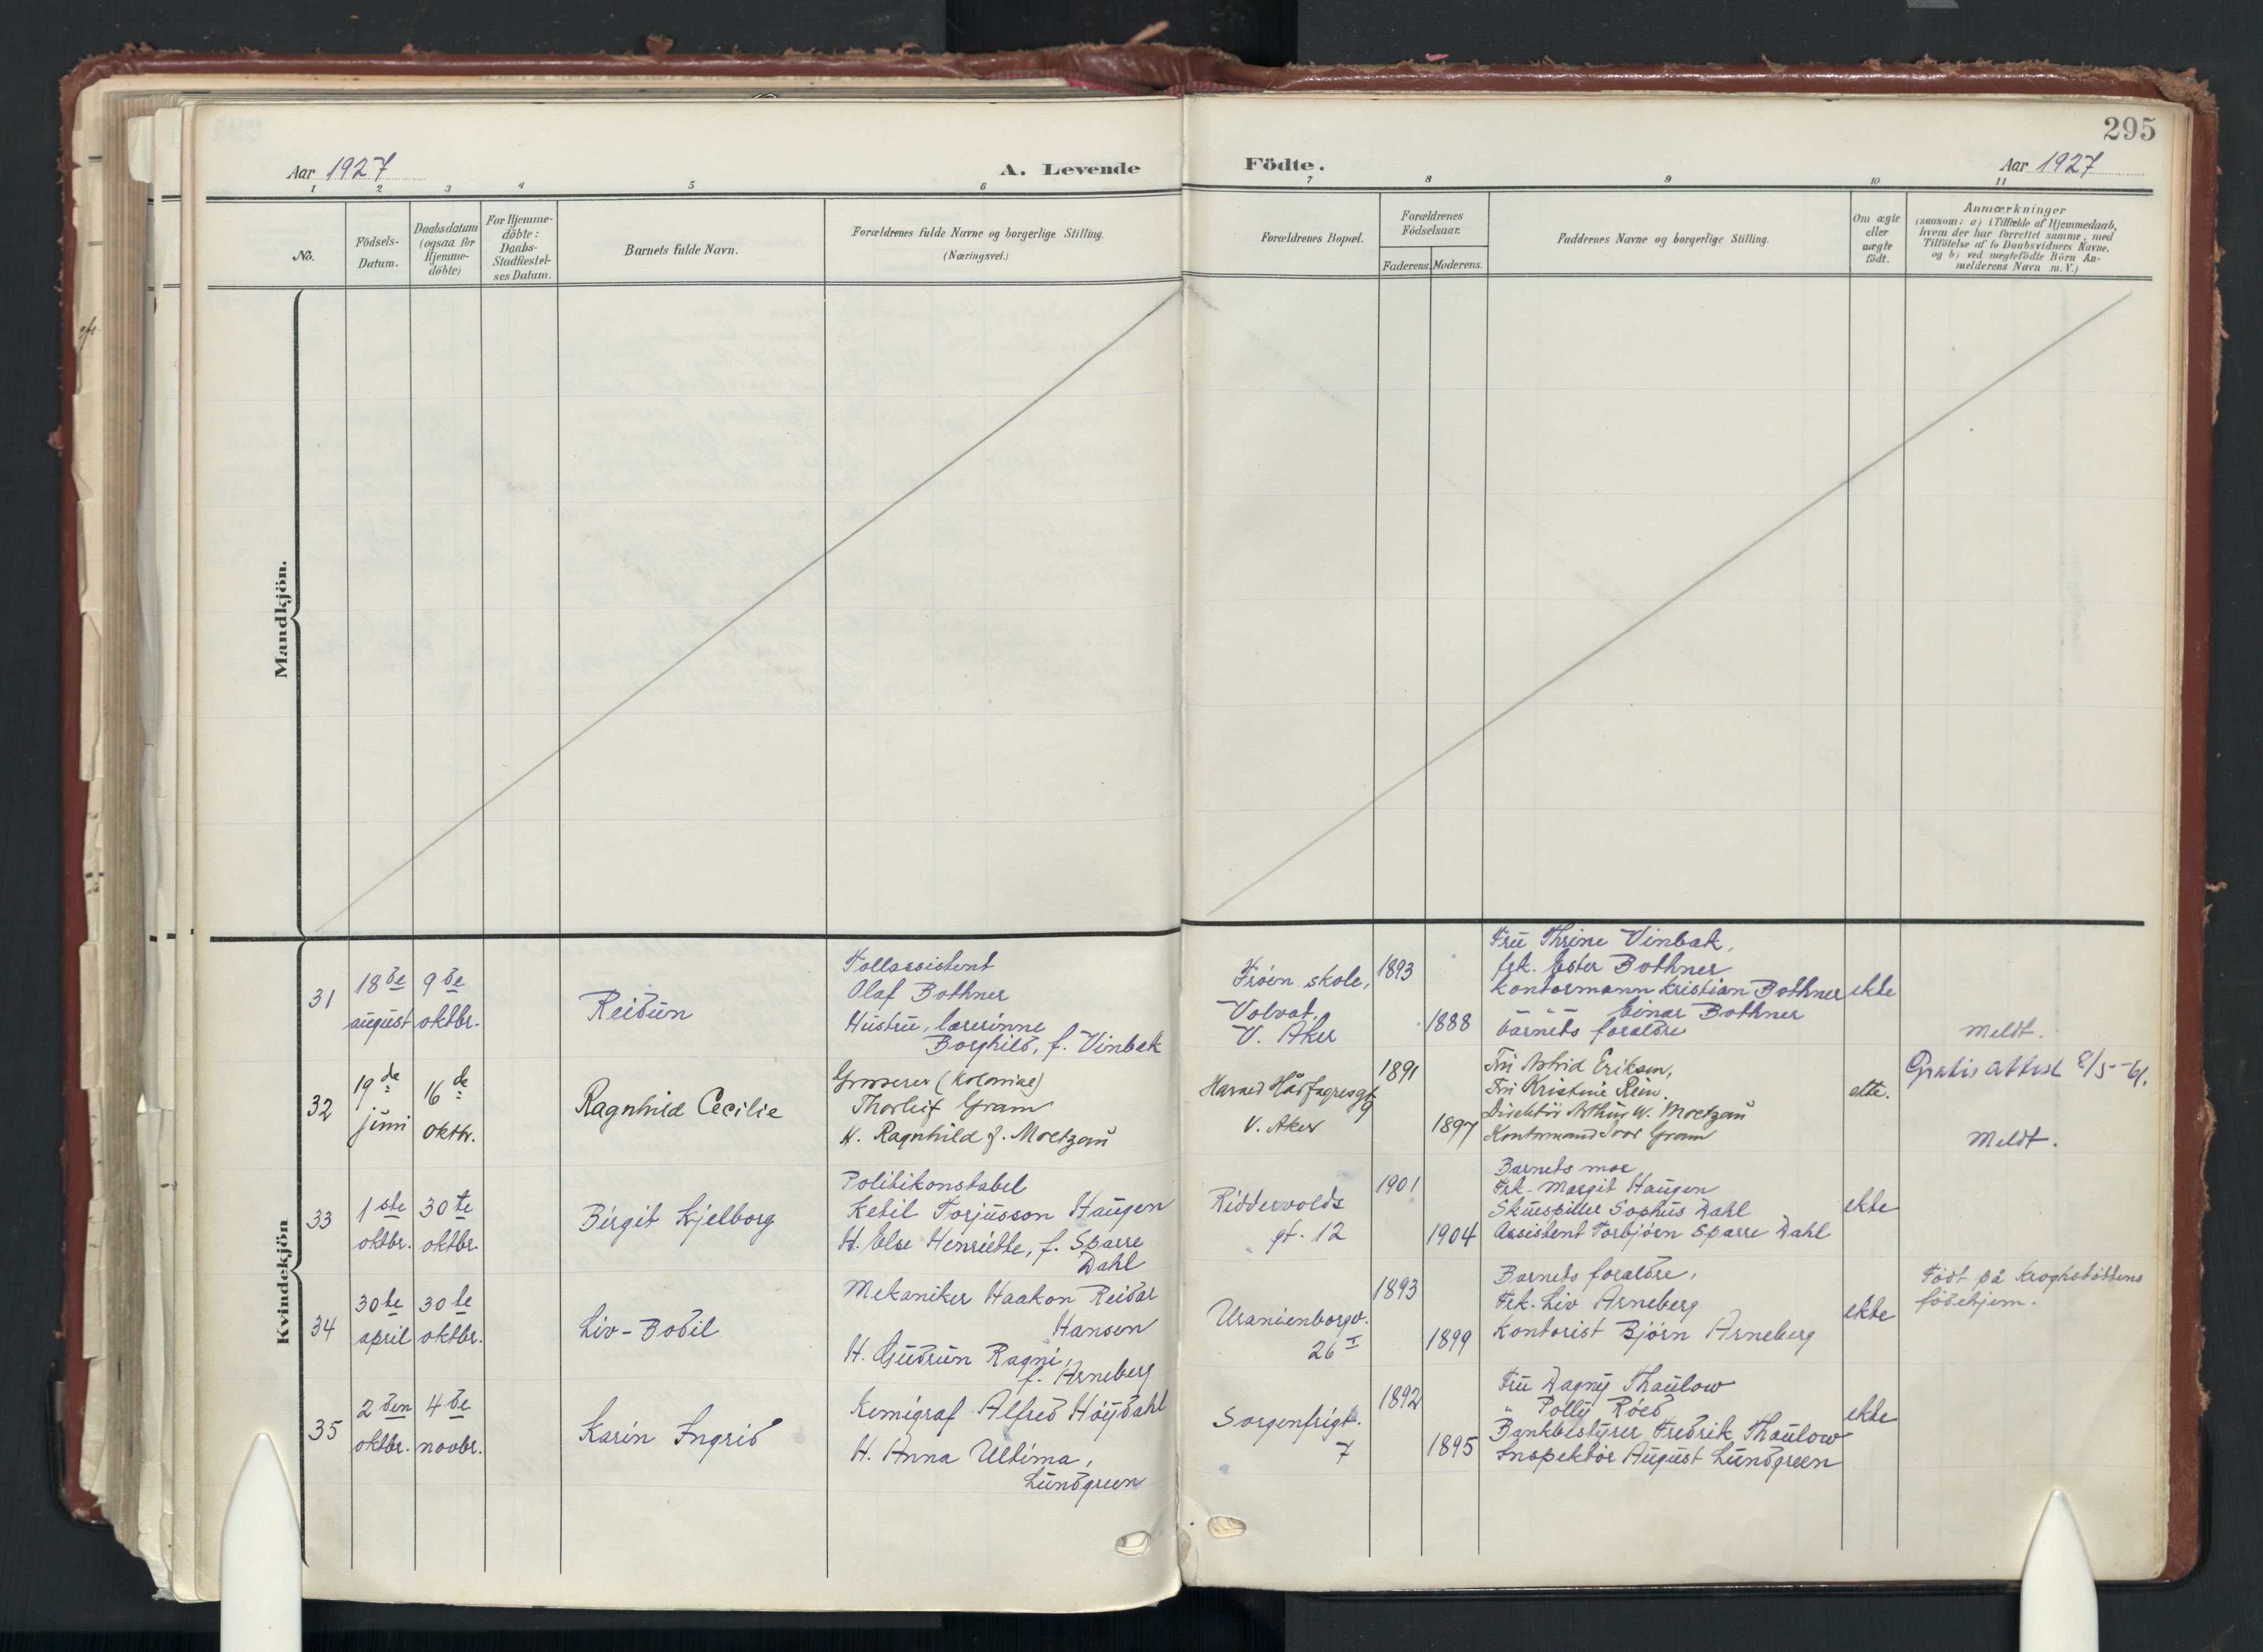 295
Aar 1927
A. Levende
Födte.
Aar 1927
1 2 3 4 5 6 7 8 9 10 11
No.
Födsels-
Datum.
Daabsdatum
(ogsaa for
Hjemme-
döbte)
For Hjemme-
döbte:
Daabs-
Stadfæstel-
ses Datum.
Barnets fulde Navn.
Forældrenes fulde Navne og borgerlige Stilling.
(Næringsvei.)
Forældrenes Bopæl.
Forældrenes
Födselsaar.
Faderens. Moderens.
Faddernes Navne og borgerlige Stilling.
Om ægte
eller
uægte
födt.
Anmærkninger
(saasom: a) i Tilfælde af Hjemmedaab,
hvem der har forrettet samme, med
Tilföielse af to Daabsvidners Navne.
og b) ved uægtefödte Börn An-
melderens Navn m.V.)
Mandkjön.
Kvindekjön
31
18de
august
9de
oktbr.
Reidun
Tollassistent
Olaf Bothner
Hustru, lærerinne
Borghild, f. Vinbak
Frøen skole,
Volvat,
V. Aker
1893
1888
Fru Thrine Vinbak,
frk. Ester Bothner
Kontormann Kristian Bothner
" " Einar Bothner
barnets foraldre
ekte
Meldt.
32
19de
juni
16de
oktbr.
Ragnhild Cecilie
Grosserer (Kolonial)
Thorleif Gram
H. Ragnhild f. Moetzau
Harald Hårfagresgt
9
V. Aker
1891
1897
Fru Astrid Eriksen,
Fru Kristine Rein.
Direktör Arthur W. Moetzau
Kontormand Ivar Gram
ekte.
Gratis attest 8/5-61.
Meldt.
33
1ste
oktbr.
30te
oktbr.
Birgit Kjelborg
Politikonstabel
Ketil Torjusson Haugen
H. Else Henriette, f. Sparre
Dahl
Riddervolds
gt. 12
1901
1904
Barnets mor
Frk. Margit Haugen
Skuespiller Sophus Dahl
Assistent Torbjørn Sparre Dahl
ekte
34
30te
april
30te
oktbr.
Liv-Bodil
Mekaniker Haakon Reidar
Hansen
H. Gudrun Ragni,
f. Arneberg
Uranienborgv.
26 I
1893
1899
Barnets foraldre,
Frk. Liv Arneberg
Kontorist Bjørn Arneberg
ekte
Født på Kroghstøttens
fødehjem.
35
2den
oktbr.
4de
novbr.
Karin Ingrid
Kemigraf Alfred Høydahl
H. Anna Ultima,
Lundgreen
Sorgenfrigt.
7
1892
1895
Fru Dagny Thaulow
" Polly Røed
Bankbestyrer Fredrik Thaulow
Inspektør August Lundgreen
ekte